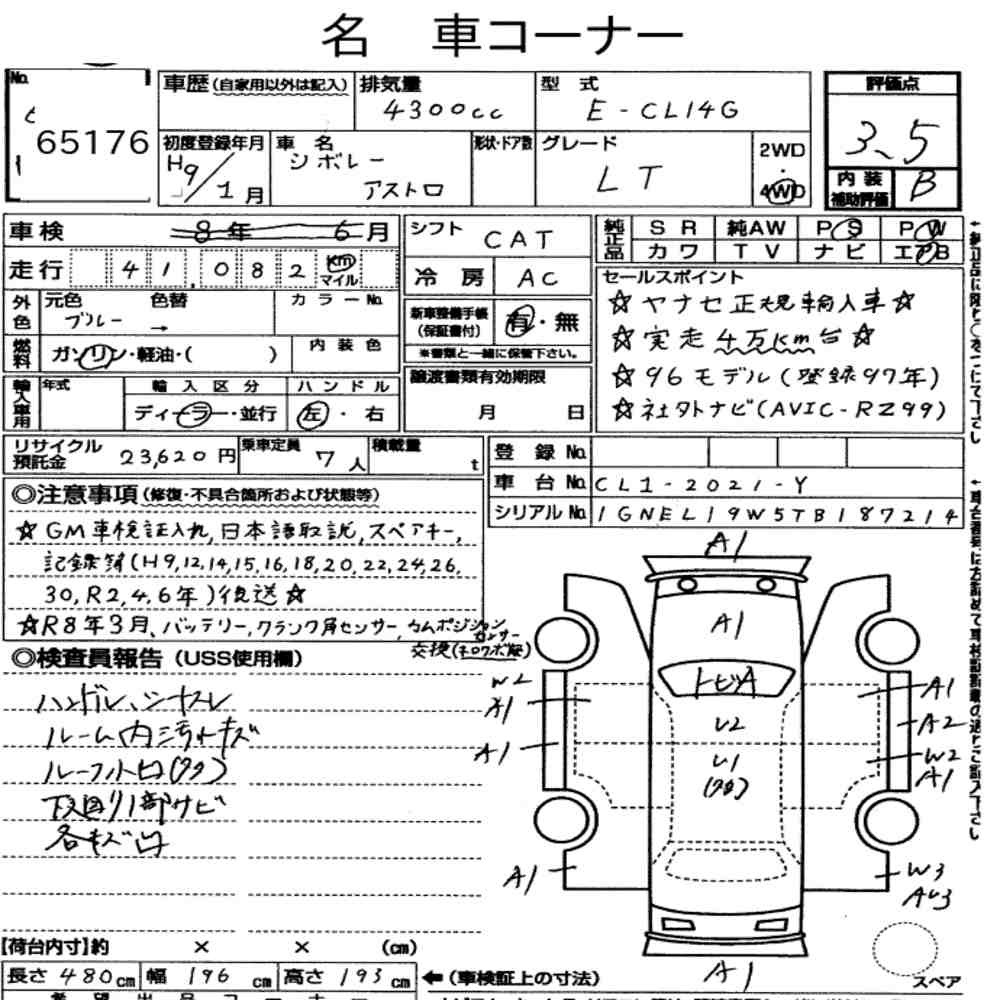 名 車コーナー
No. 65176
車歴(自家用以外は記入)
排気量 4300cc
型式 E-CL14G
評価点 3.5
内装補助評価 B
初度登録年月 H9/1月
車名 シボレー アストロ
形状・ドア数
グレード LT
2WD・4WD
車検 8年 6月
走行 41,082 km マイル
外色 元色 ブルー 色替 → カラーNo.
燃料 ガソリン・軽油・( ) 内装色
輸入車用 年式 輸入区分 ディーラー・並行 ハンドル 左・右
シフト CAT
冷房 AC
新車整備手帳(保証書付) 有・無
※書類と一緒に保管下さい。
譲渡書類有効期限 月 日
純正品 SR 純AW PS PW
カワ TV ナビ エアB
セールスポイント
☆ヤナセ正規輸入車☆
☆実走4万km台☆
☆96モデル(登録97年)
☆社外ナビ(AVIC-RZ99)
リサイクル預託金 23,620円
乗車定員 7人
積載量 t
登録No.
車台No. CL1-2021-Y
シリアルNo. 1GNEL19W5TB187214
◎注意事項(修復・不具合箇所および状態等)
☆GM車検証入れ,日本語取説,スペアキー,
記録簿(H9,12,14,15,16,18,20,22,24,26,
30,R2,4,6年)後送☆
☆R8年3月、バッテリー,クランク角センサー,カムポジションセンサー
交換
◎検査員報告(USS使用欄)
ハンドル、シヤスレ
ルーム内汚れキズ
下廻り1部サビ
各キズ凹
A1
A1
トビA
U2
U1
W2
A1
A1
A1
A1
A2
W2
A1
W3
A1
スペア
【荷台内寸】約 × × (cm)
長さ 480cm 幅 196cm 高さ 193cm ←(車検証上の寸法)